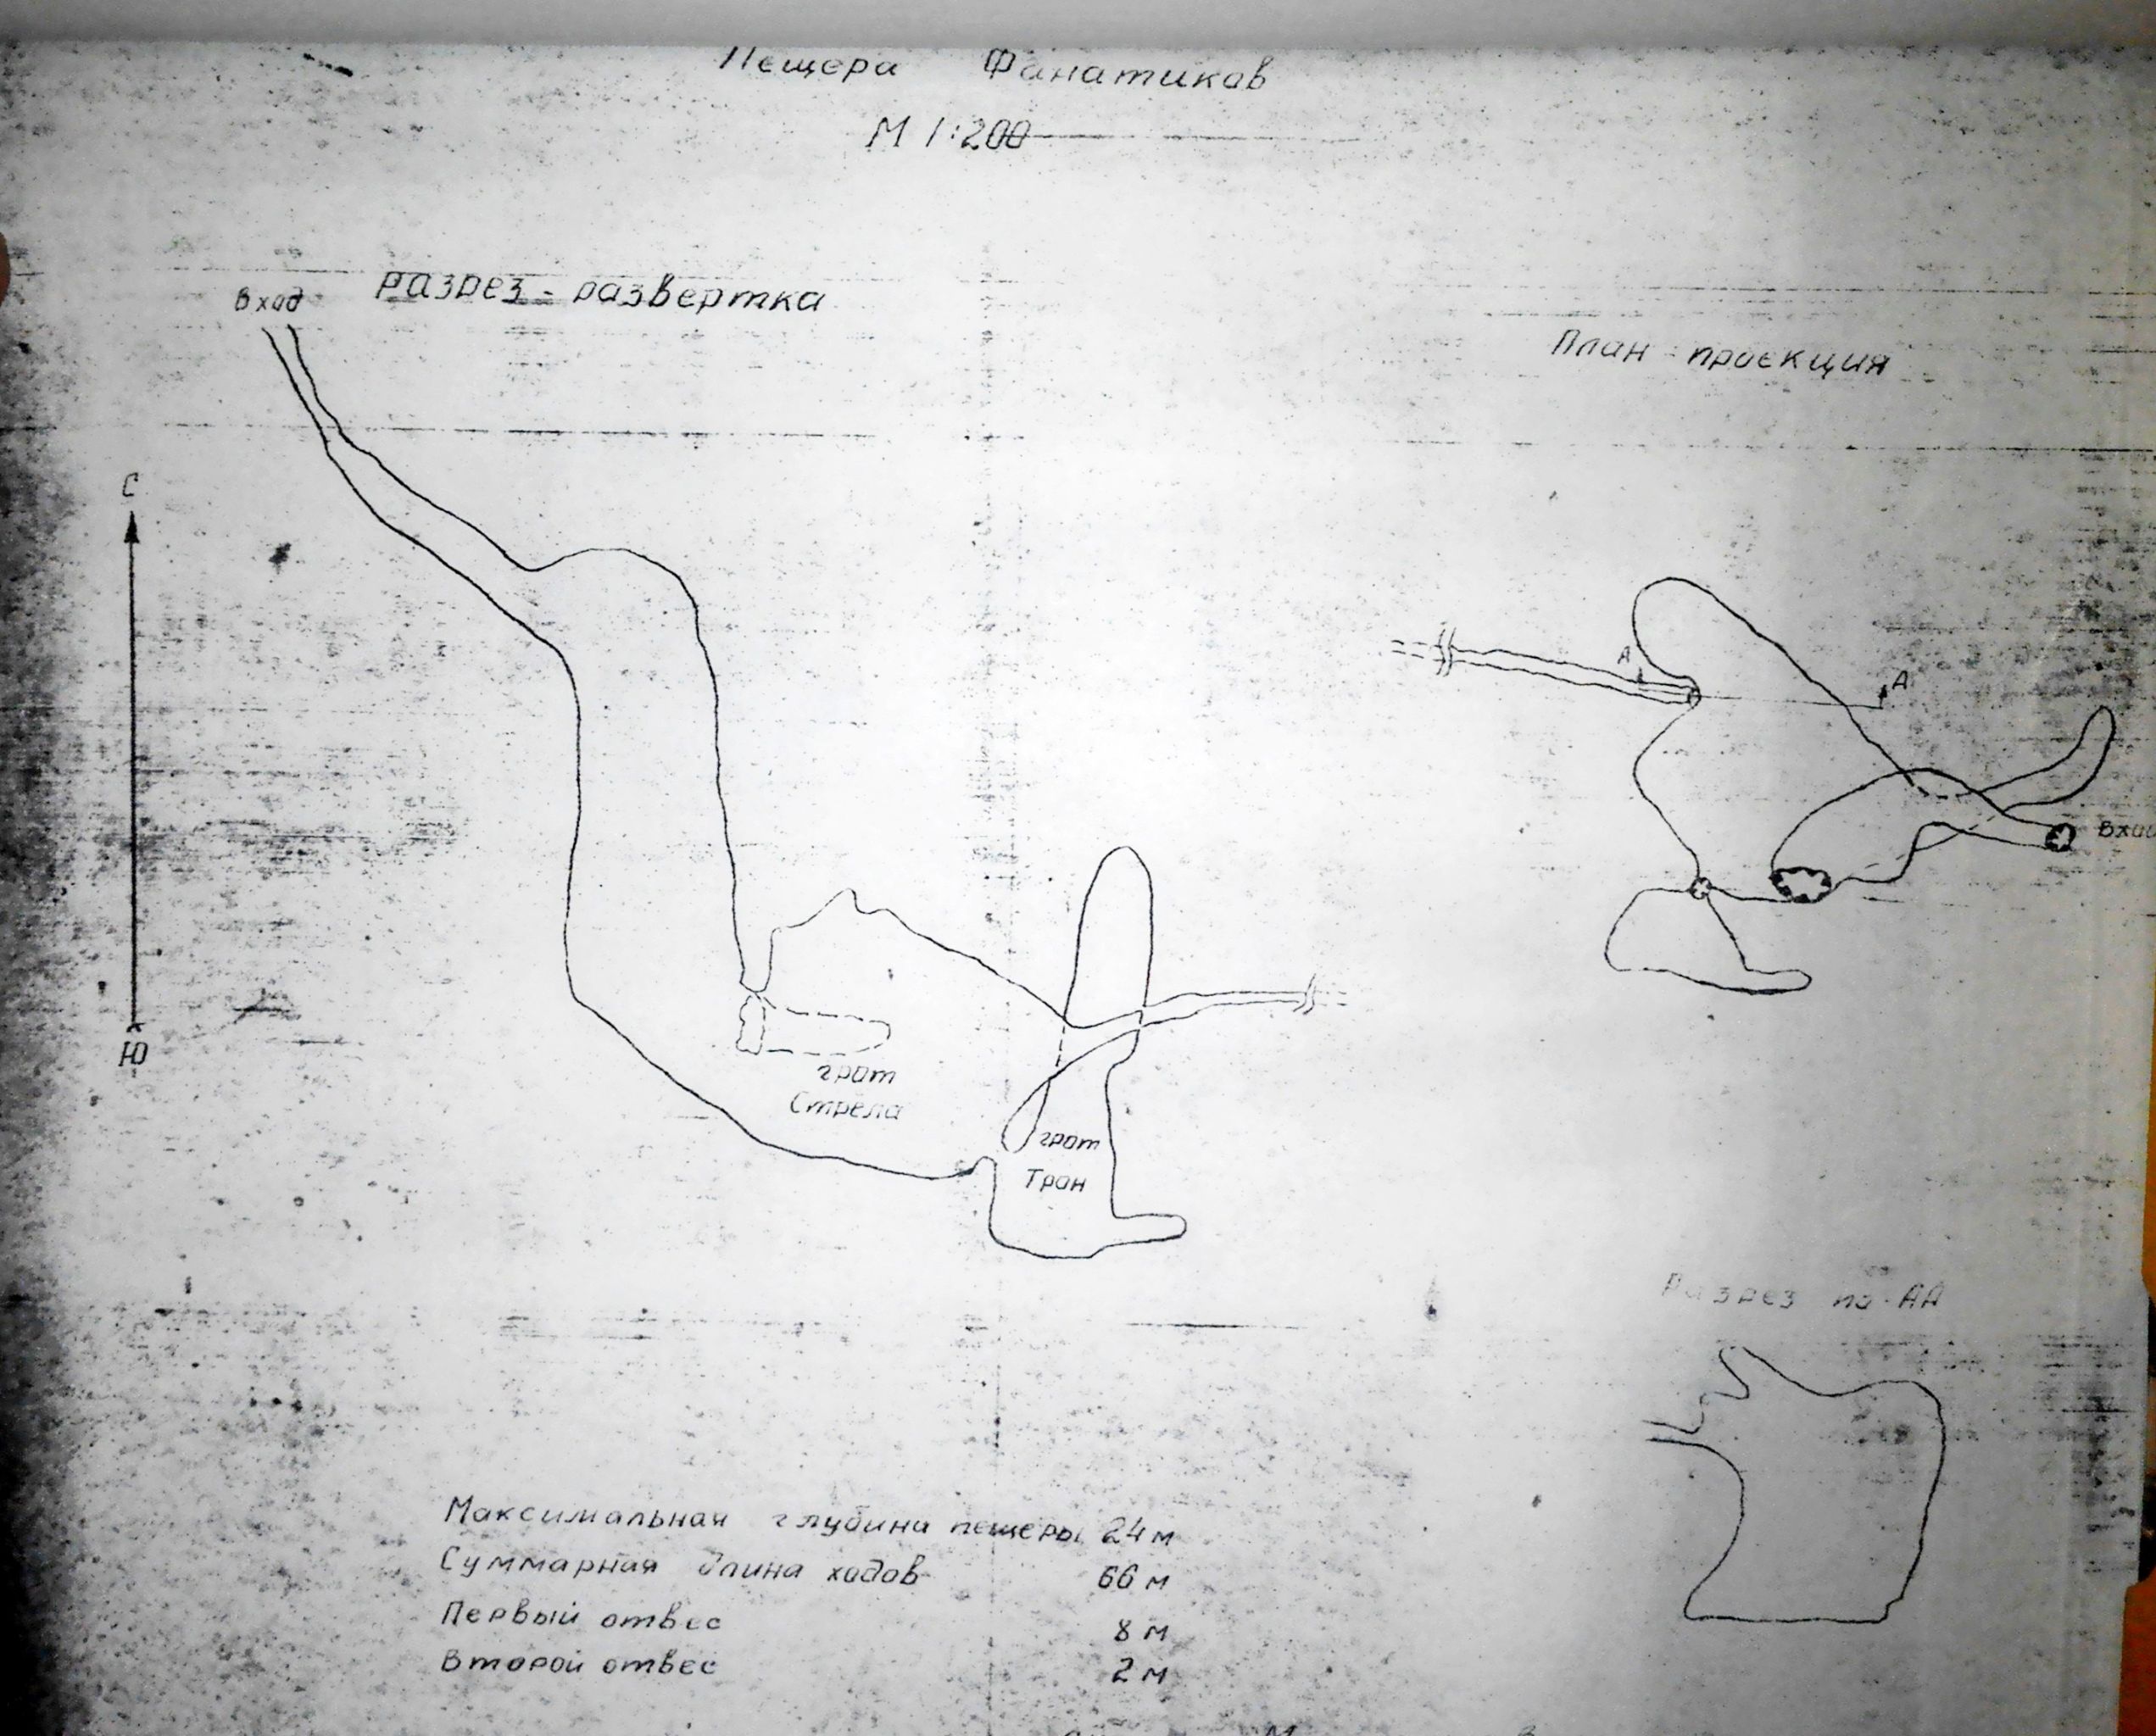 Пещера Фанатиков
М 1:200
Вход
Разрез - развертка
План - проекция
С
Ю
А
А
Вход
грот
Стрела
грот
Тран
Разрез по АА
Максимальная глубина пещеры 24 м
Суммарная длина ходов 66 м
Первый отвес 8 м
Второй отвес 2 м